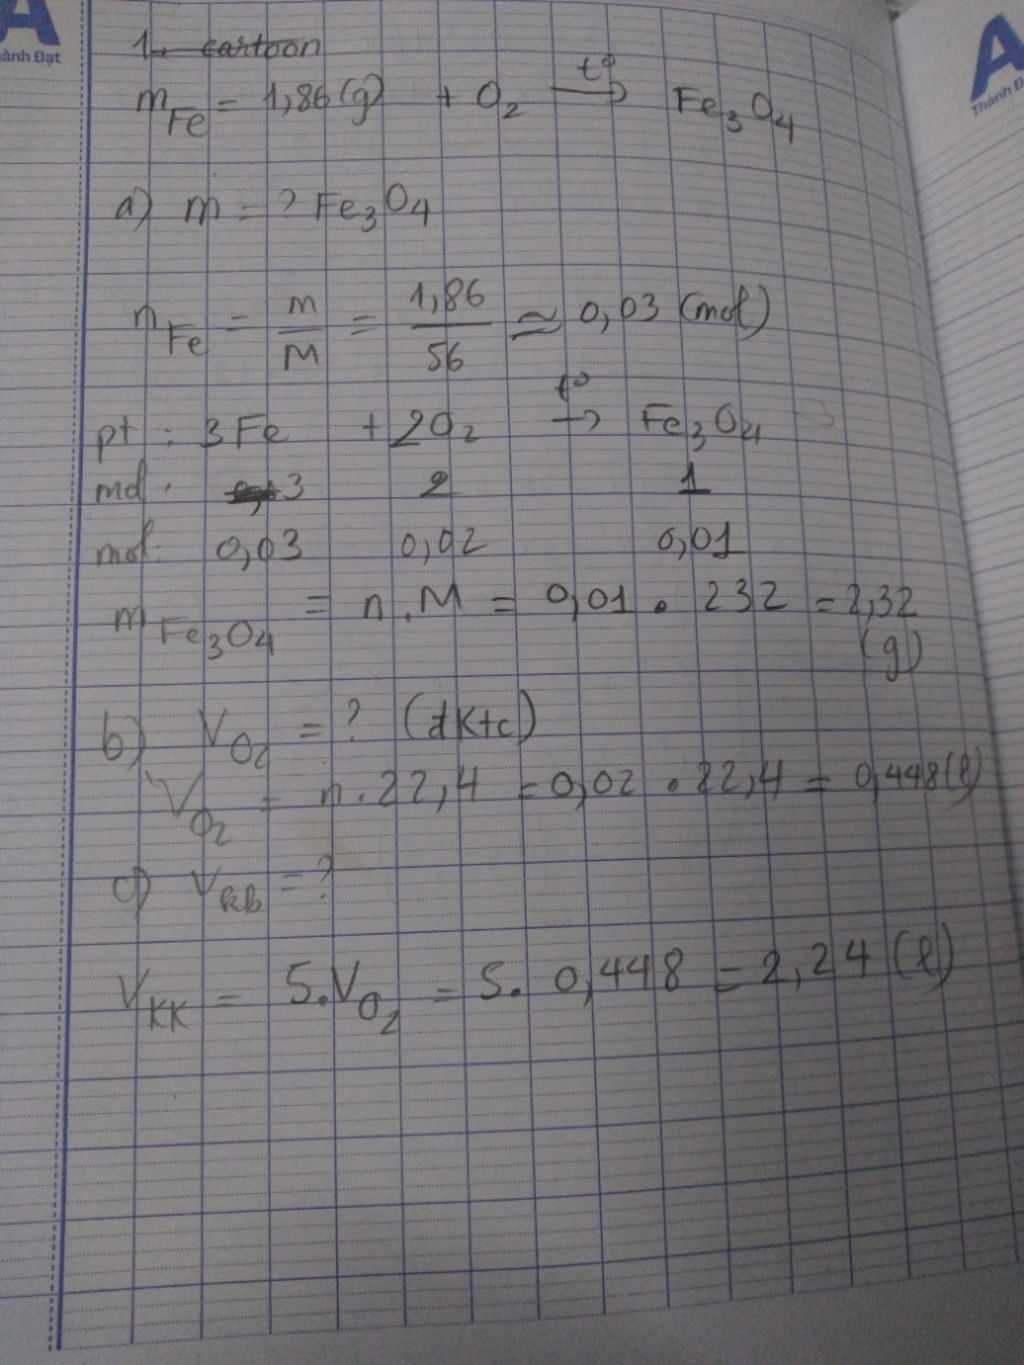 A
A
ành Đạt
Thành Đ
1. cartoon
mFe = 1,86 (g) + O2 t° → Fe3O4
a) m = ? Fe3O4
nFe = m/M = 1,86/56 ≈ 0,03 (mol)
pt : 3Fe + 2O2 t° → Fe3O4
md : 3 2 1
mol 0,03 0,02 0,01
mFe3O4 = n.M = 0,01 . 232 = 2,32
(g)
b) VO2 = ? (đktc)
VO2 = n.22,4 = 0,02 . 22,4 = 0,448 (l)
c) Vkk = ?
VKK = 5.VO2 = 5. 0,448 = 2,24 (l)